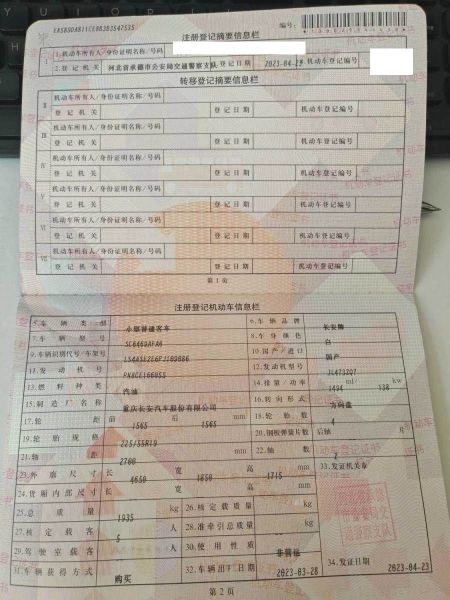 注册登记摘要信息栏
编号：
I
1.机动车所有人/身份证明名称/号码
2.登记机关 河北省承德市公安局交通警察支队 登记日期 2023-04-23 机动车登记编号
转移登记摘要信息栏
II 机动车所有人/身份证明名称/号码
登记机关 登记日期 机动车登记编号
III 机动车所有人/身份证明名称/号码
登记机关 登记日期 机动车登记编号
IV 机动车所有人/身份证明名称/号码
登记机关 登记日期 机动车登记编号
V 机动车所有人/身份证明名称/号码
登记机关 登记日期 机动车登记编号
VI 机动车所有人/身份证明名称/号码
登记机关 登记日期 机动车登记编号
VII 机动车所有人/身份证明名称/号码
登记机关 登记日期 机动车登记编号
第1页
注册登记机动车信息栏
5.车辆类型 小型普通客车 6.车辆品牌 长安牌
7.车辆型号 SC6469AFA6 8.车身颜色 白
9.车辆识别代号/车架号 10.国产/进口 国产
11.发动机号 12.发动机型号 JL473ZQ7
13.燃料种类 汽油 14.排量/功率 1494 ml/ 138 kw
15.制造厂名称 重庆长安汽车股份有限公司 16.转向形式 方向盘
17.轮距 前 1565 后 1565 mm 18.轮胎数 4
19.轮胎规格 225/55R19 20.钢板弹簧片数 后轴 片
21.轴距 2700 mm 22.轴数 2
23.外廓尺寸 长 4650 宽 1850 高 1715 mm 33.发证机关章
24.货厢内部尺寸 长 宽 高 mm
25.总质量 1935 kg 26.核定载质量 kg
27.核定载客 5 人 28.准牵引总质量 kg
29.驾驶室载客 人 30.使用性质 非营运
31.车辆获得方式 购买 32.车辆出厂日期 2023-03-28 34.发证日期 2023-04-23
第2页